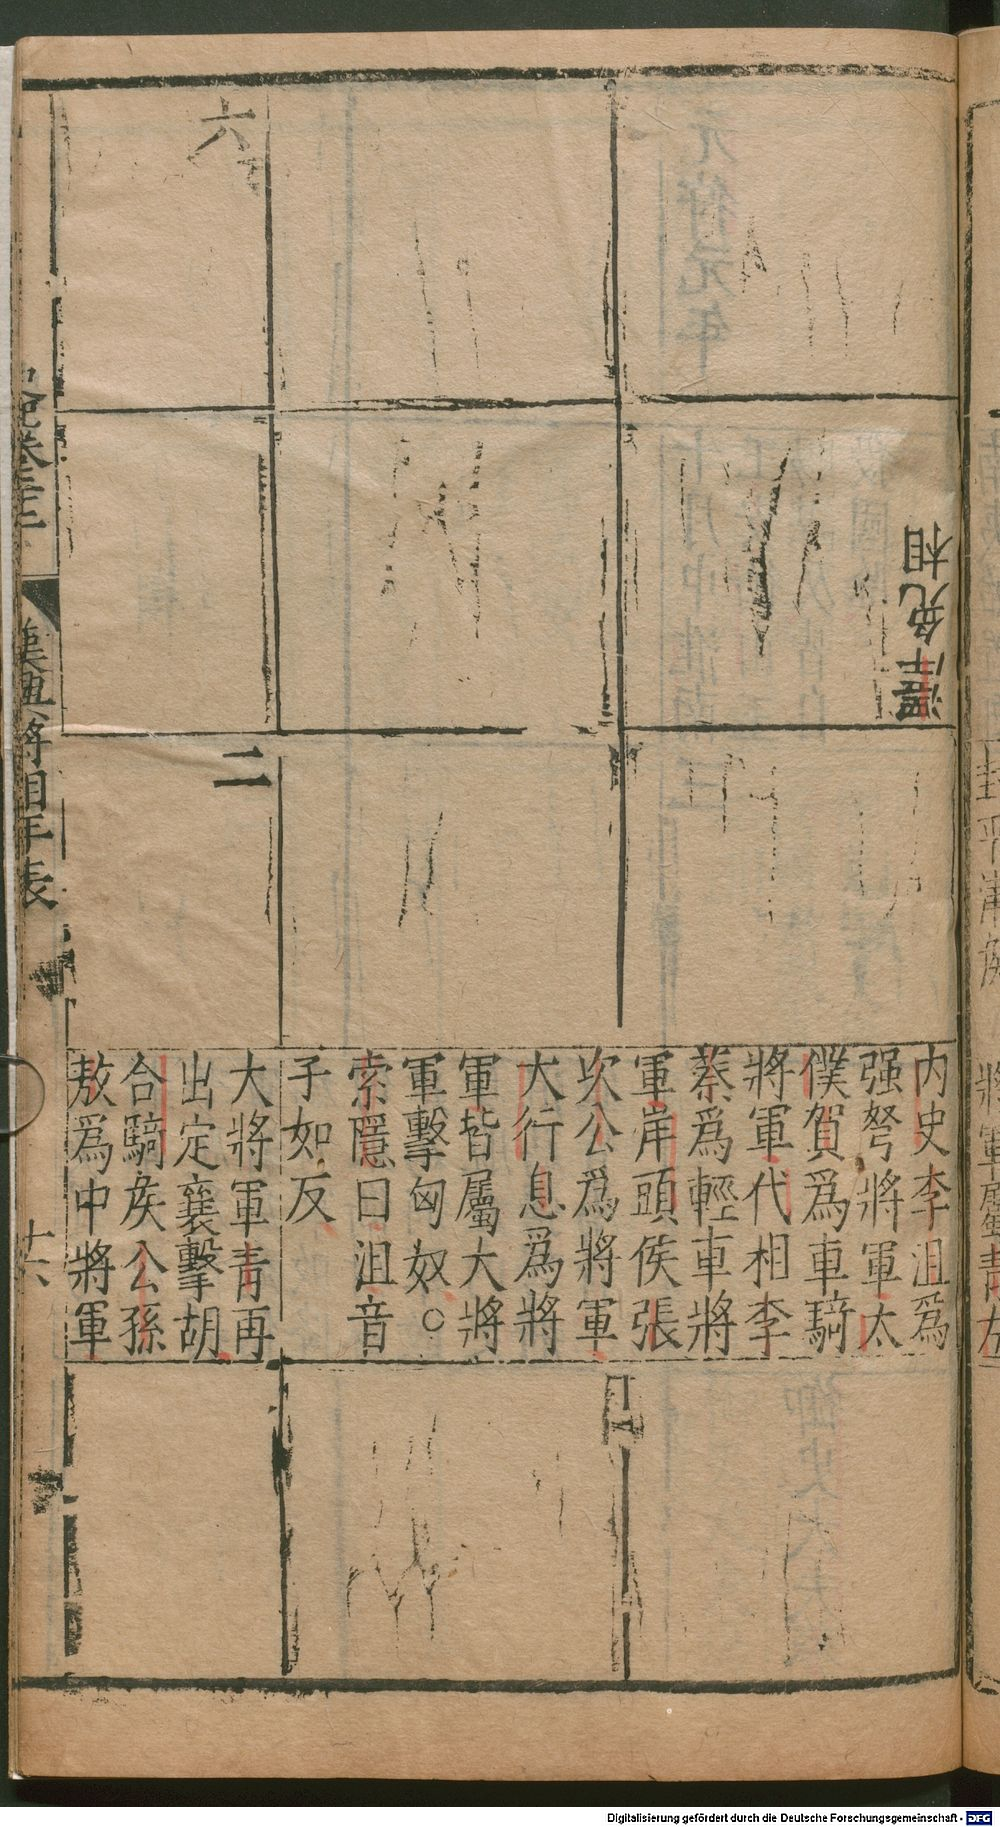 澤免相
內史李沮爲
强弩將軍太
僕賀爲車騎
將軍代相李
蔡爲輕車將
軍岸頭侯張
次公爲將軍
大行息爲將
軍皆屬大將
軍擊匈奴○
索隱曰沮音
子如反
六
二
大將軍青再
出定襄擊胡
合騎矦公孫
敖爲中將軍
漢興將相年表
Digitalisierung gefördert durch die Deutsche Forschungsgemeinschaft - DFG